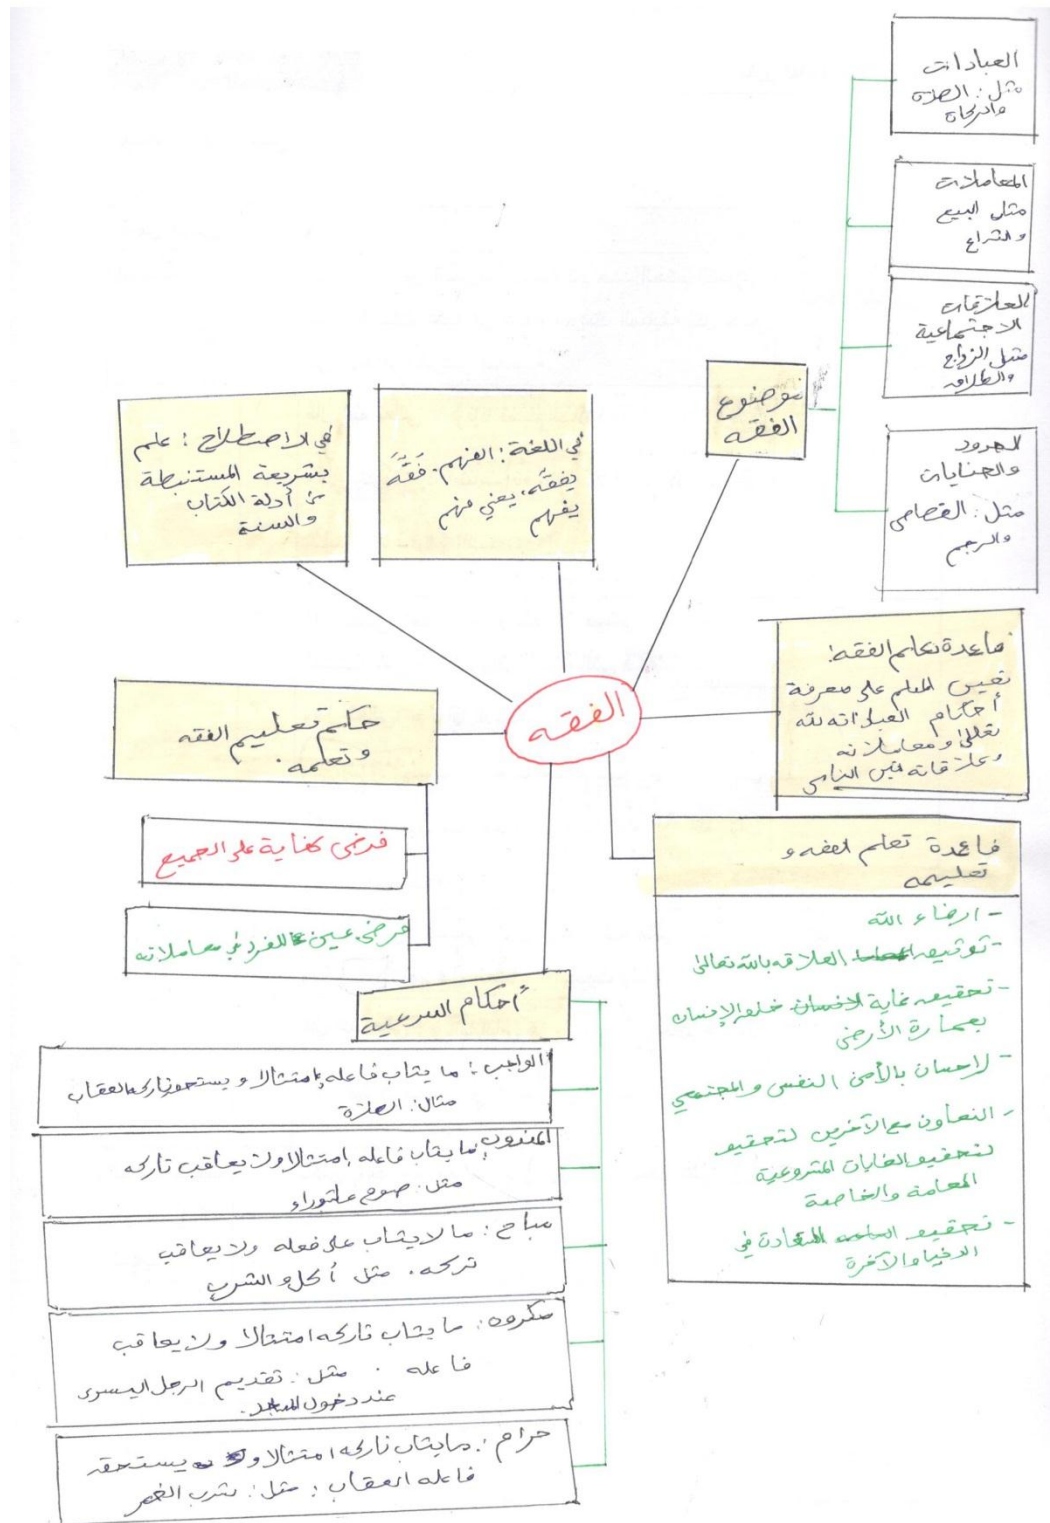 العبادات
مثل: الصلاة
والزكاة
المعاملات
مثل البيع
والشراع
العلاقات
الاجتماعية
مثل الزواج
والطلاق
الحدود
والجنايات
مثل: القصاص
والرجم
موضوع
الفقه
في اللغة: الفهم. فَقَّهَ
يفقه، يعني فهم
يفهم
في الاصطلاح: علم
بشريعة المستنبطة
من أدلة الكتاب
والسنة
الفقه
فاعدة تعلم الفقه:
تعين المسلم على معرفة
أحكام العباداته لله
تعالى ومعاملاته
وعلاقاته بين الناس
حكم تعليم الفقه
وتعلمه.
فرض كفاية على الجميع
فرض عين للفرد في معاملاته
فاعدة تعلم الفقه و
تعليمه
- ارضاء الله
- توثيق العلاقه بالله تعالى
- تحقيق غاية الانسان خلق الإنسان
بعمارة الأرض
- لإحسان بالأمن النفس والمجتمعي
- التعاون مع الآخرين لتحقيق
لتحقيق الغايات المشروعية
العامة والخاصة
- تحقيق السعادة في
الدنيا والآخرة
أحكام السرعية
الواجب: ما يثاب فاعله إمتثالا ويستحق تاركه العقاب
مثال: الصلاة
المندوب: ما يثاب فاعله إمتثالا ولا يعاقب تاركه
مثل: صوم عاشوراء
مباح: ما لا يثاب على فعله ولا يعاقب
تركه. مثل أكل والشرب
مكروه: ما يثاب تاركه امتثالا ولا يعاقب
فاعله. مثل: تقديم الرجل اليسرى
عند دخول المسجد.
حرام: ما يثاب تاركه امتثالا و يستحق
فاعله العقاب: مثل: شرب الخمر